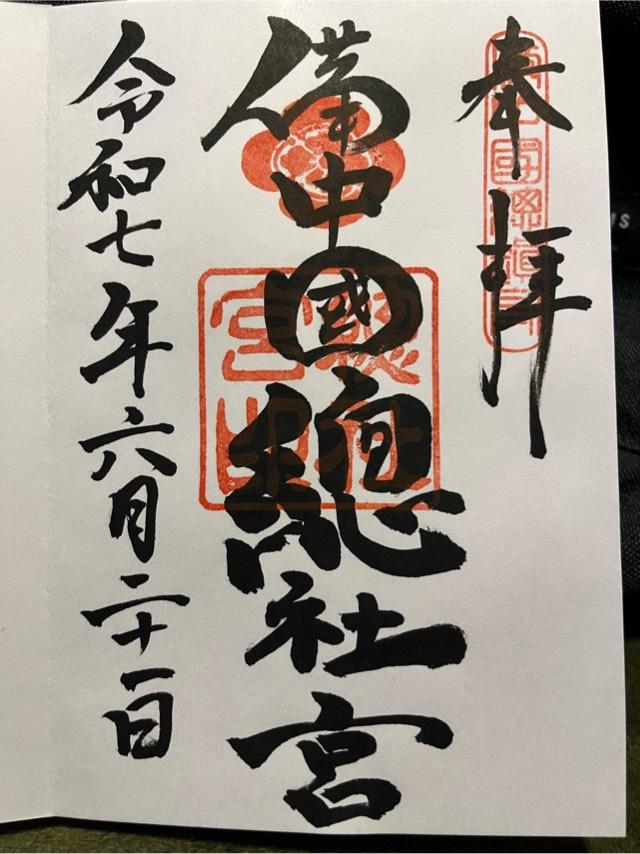 奉拝
備中國總社宮
令和七年六月二十一日